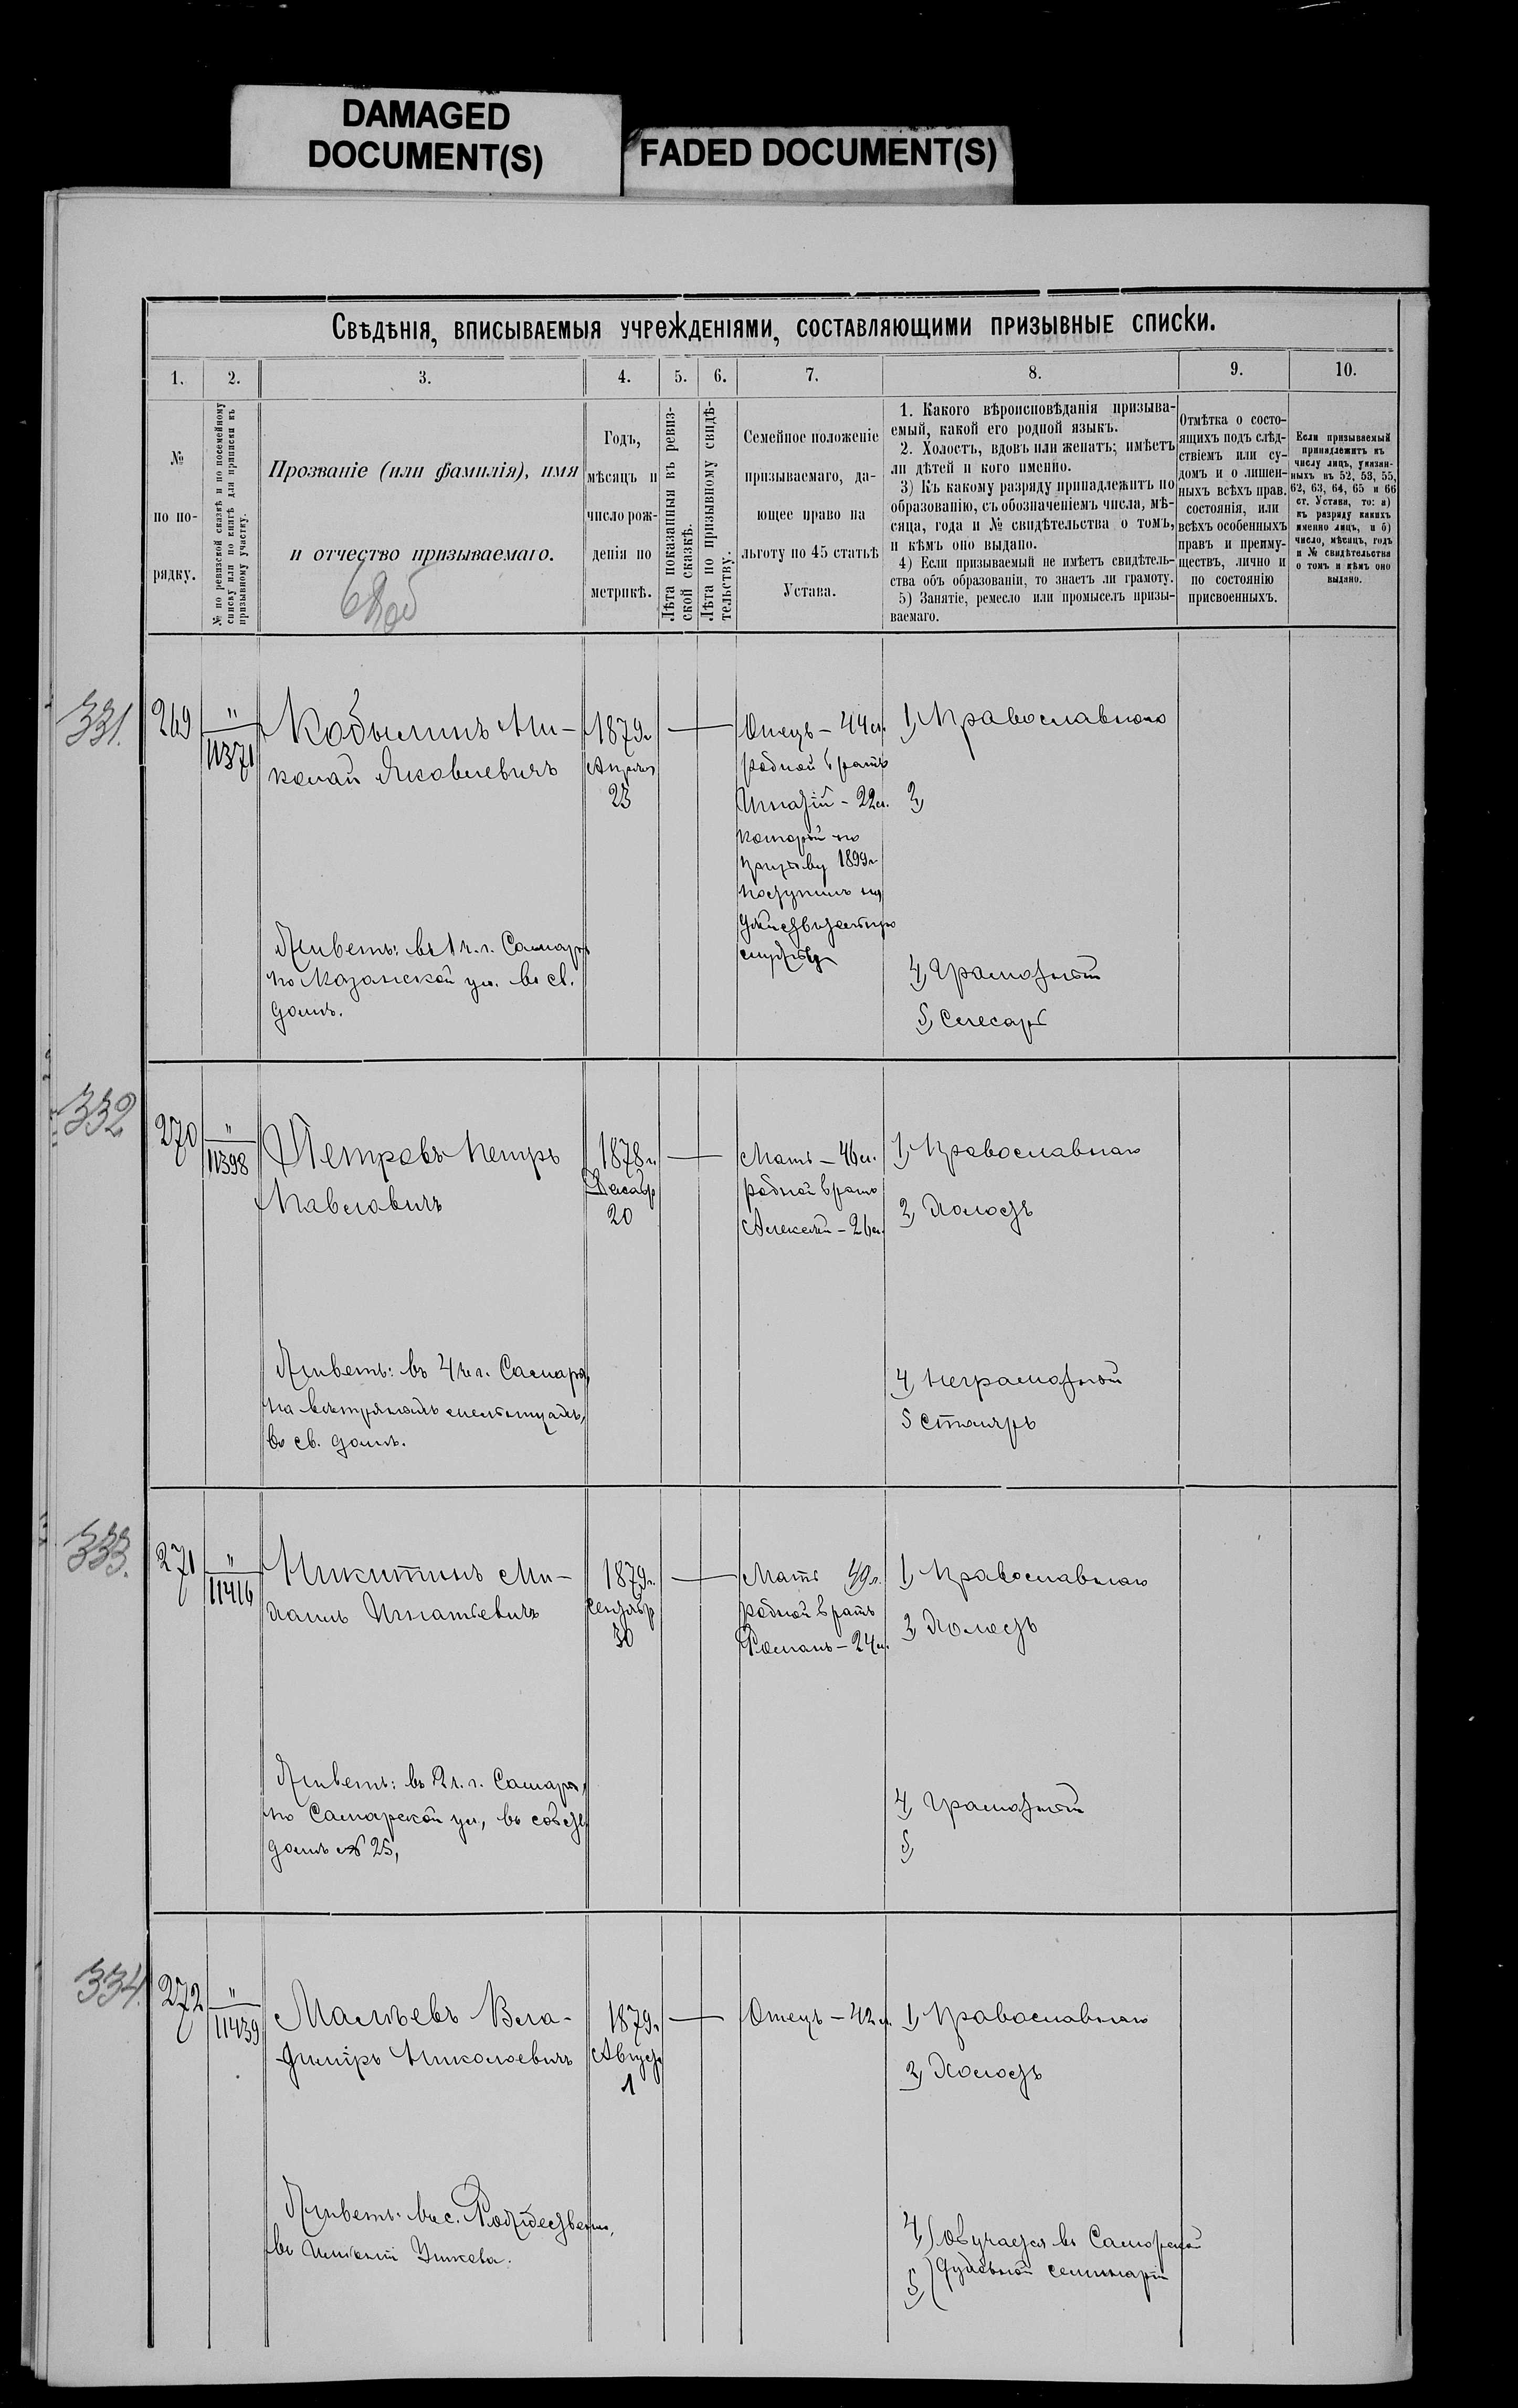 DAMAGED
DOCUMENT(S)
FADED DOCUMENT(S)
Свѣдѣнія, вписываемыя учрежденіями, составляющими призывные списки.
1.
2.
3.
4.
5.
6.
7.
8.
9.
10.
№
по по-
рядку.
№ по ревизской сказкѣ и по посемейному
списку или по книгѣ для приписки къ
призывному участку.
Прозваніе (или фамилія), имя
и отчество призываемаго.
Годъ,
мѣсяцъ и
число рож-
денія по
метрикѣ.
Лѣта показанныя въ ревиз-
ской сказкѣ.
Лѣта по призывному свидѣ-
тельству.
Семейное положеніе
призываемаго, да-
ющее право на
льготу по 45 статьѣ
Устава.
1. Какого вѣроисповѣданія призыва-
емый, какой его родной языкъ.
2. Холостъ, вдовъ или женатъ; имѣетъ
ли дѣтей и кого именно.
3) Къ какому разряду принадлежитъ по
образованію, съ обозначеніемъ числа, мѣ-
сяца, года и № свидѣтельства о томъ,
и кѣмъ оно выдано.
4) Если призываемый не имѣетъ свидѣтель-
ства объ образованіи, то знаетъ ли грамоту.
5) Занятіе, ремесло или промыселъ призы-
ваемаго.
Отмѣтка о состо-
ящихъ подъ слѣд-
ствіемъ или су-
домъ и о лишен-
ныхъ всѣхъ прав.
состоянія, или
всѣхъ особенныхъ
правъ и преиму-
ществъ, лично и
по состоянію
присвоенныхъ.
Если призываемый
принадлежитъ къ
числу лицъ, указан-
ныхъ въ 52, 53, 55,
62, 63, 64, 65 и 66
ст. Устава, то: а)
къ разряду какихъ
именно лицъ, и б)
число, мѣсяцъ, годъ
и № свидѣтельства
о томъ и кѣмъ оно
выдано.
331.
269
"
11371
Кобылинъ Ни-
колай Яковлевичъ
1879г.
Апрѣля
23
Отецъ - 44л.
родной братъ
Игнатій - 22л.
который по
призыву 1899г
поступилъ на
дѣйствительную
службу
1, Православнаго
2,
Живетъ: въ 1 ч. г. Самары
по Казанской ул. въ св.
домѣ.
4, Грамотный
5, Слесарь
332
270
"
11398
Петровъ Петръ
Павловичъ
1878г.
Декабр
20
Мать - 46л.
родной братъ
Алексѣй - 26л.
1, Православнаго
2, Холостъ
Живетъ: въ 4 ч. г. Самары,
на вѣтряномъ
въ св. домѣ.
4, Неграмотный
5 Столяръ
333.
271
"
11416
Никитинъ Ми-
хаилъ Игнатьевичъ
1879г.
Сентябр
30
Мать 49л.
родной братъ
Романъ - 24л.
1, Православнаго
2, Холостъ
Живетъ: въ 2 ч. г. Самары,
по Самарской ул., въ собст.
домѣ № 25,
4, Грамотный
5,
334.
272
"
11439
Малѣевъ Вла-
диміръ Николаевичъ
1879г.
Август
1
Отецъ - 42л.
1, Православнаго
2, Холостъ
Живетъ: въ с. Рождествено,
въ имѣніи Ушкова.
4,) обучается въ Самарской
5,) духовной семинаріи